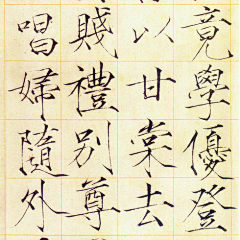 竟學優登
以甘棠去
賤禮別尊
唱婦隨外